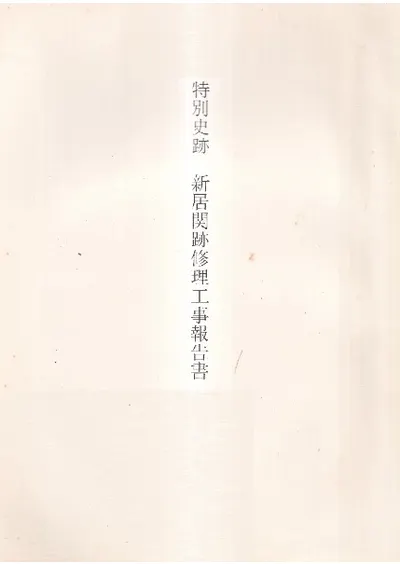 特別史跡　新居関跡修理工事報告書